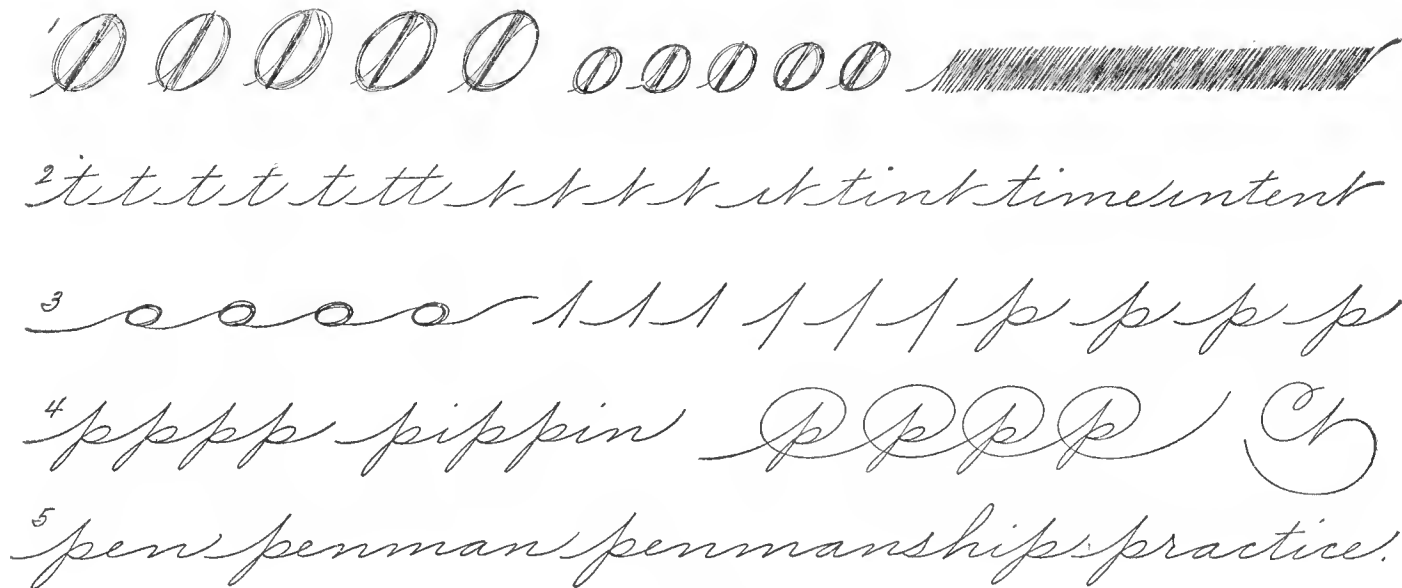 1
2 t t t t t tt t t t t it tint time intent
3 p p p p
4 pppp pippin pppp
5 pen penman penmanship practice.